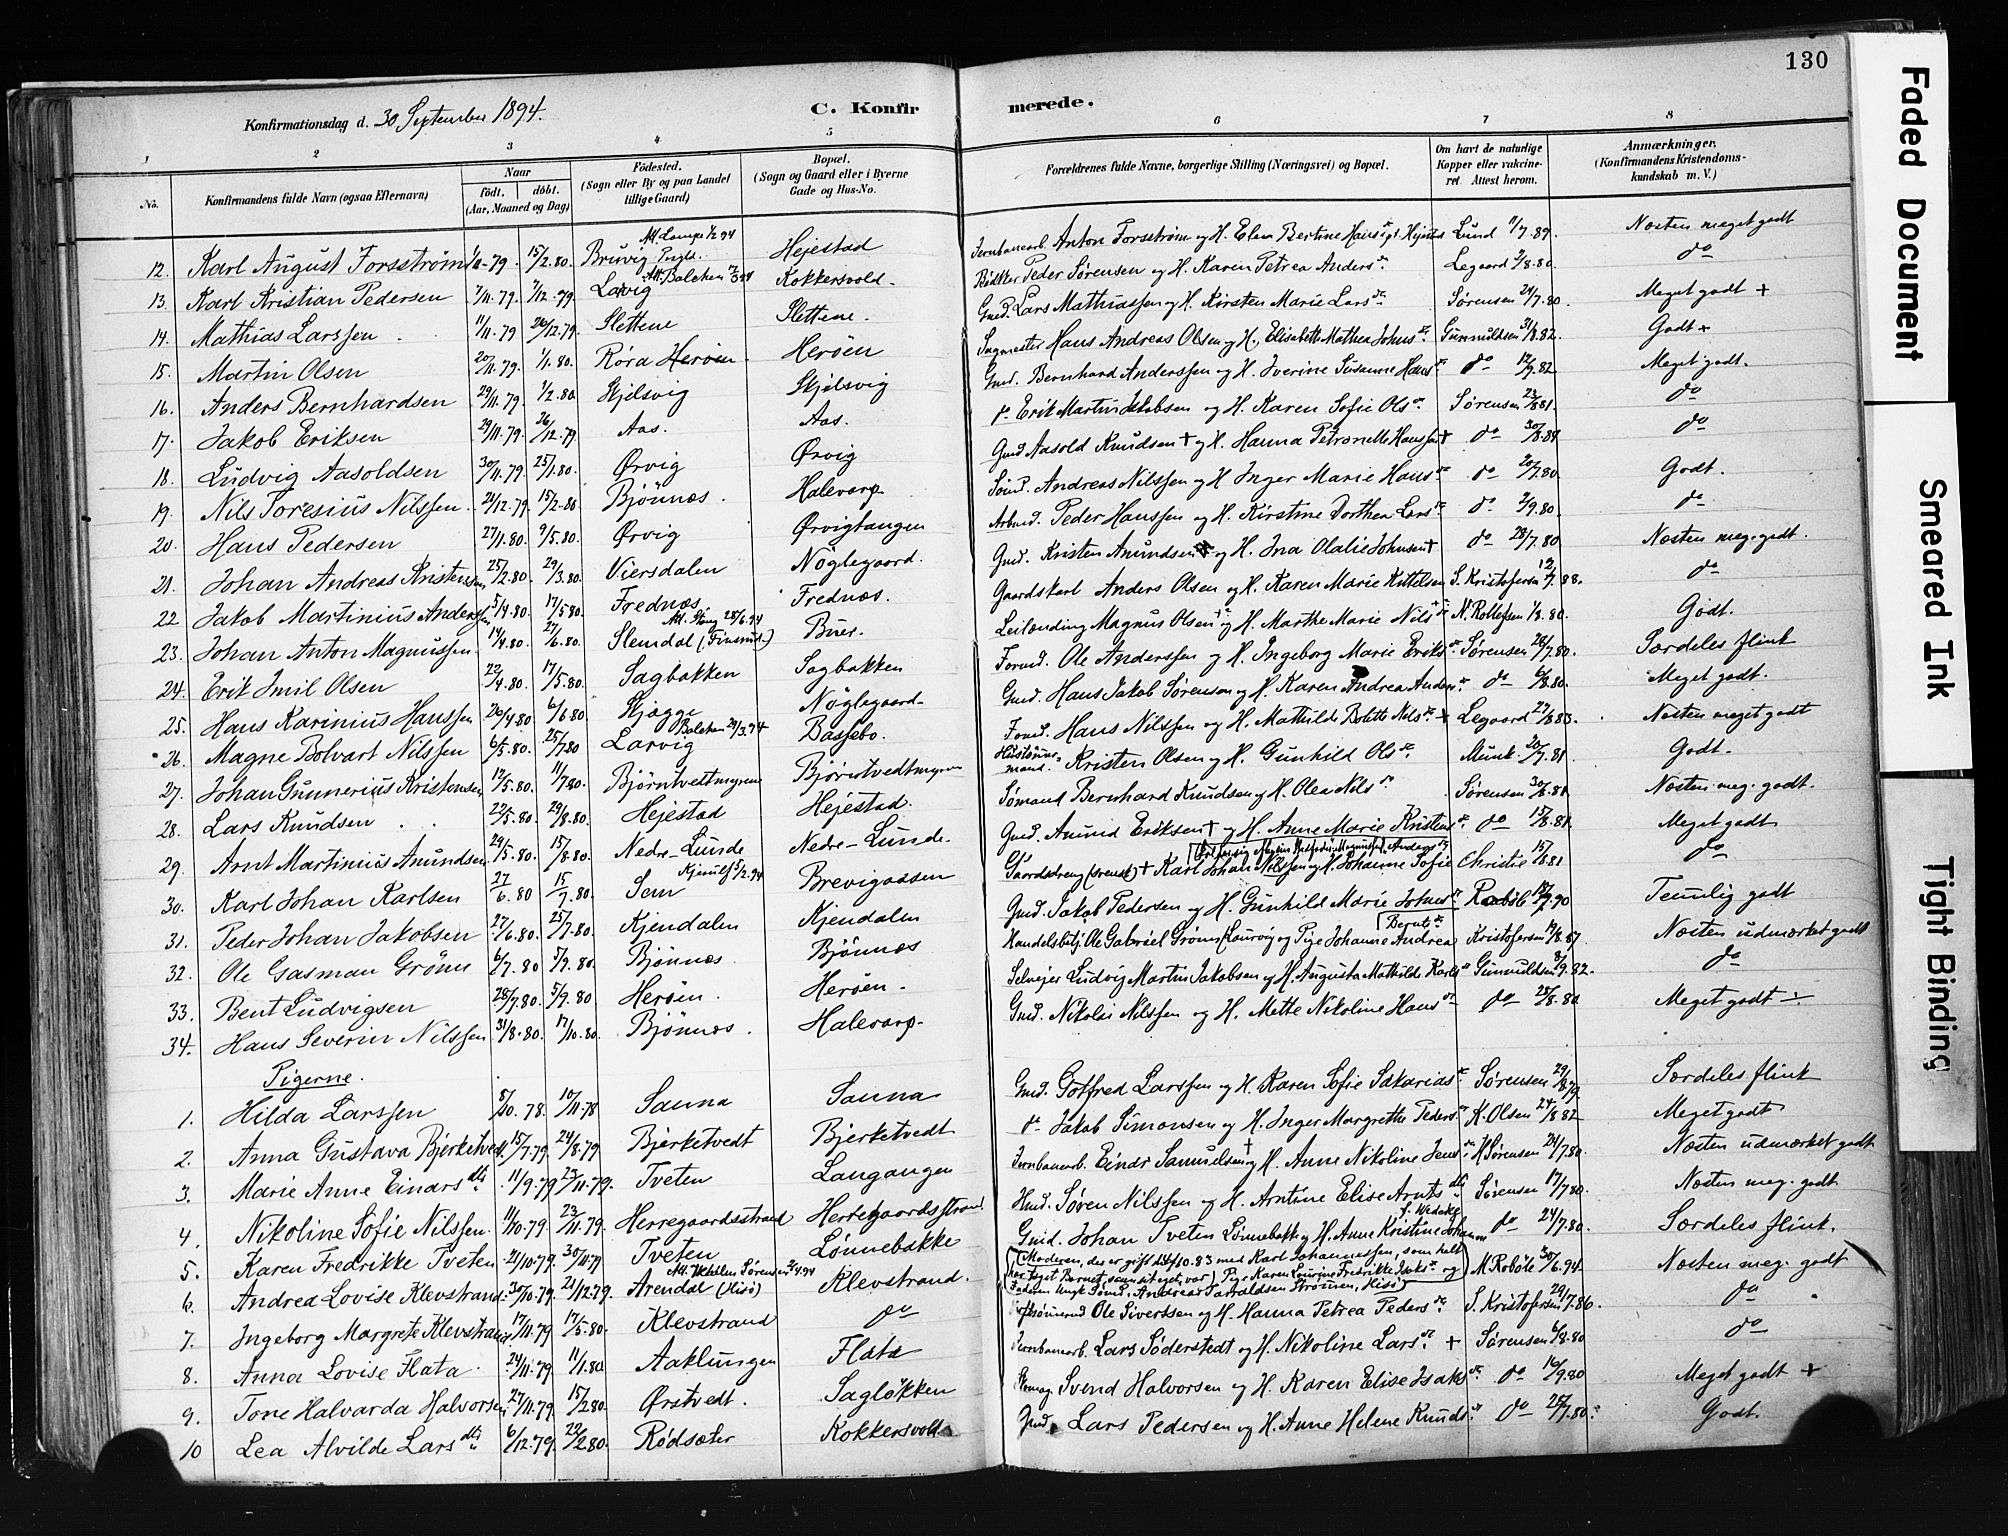 130
Konfirmationsdag d. 30 September 1894.
C. Konfirmerede.
1 2 3 4 5 6 7 8
No. Konfirmandens fulde Navn (ogsaa Efternavn) Naar födt. döbt. (Aar, Maaned og Dag) Födested. (Sogn eller By og paa Landet tillige Gaard) Bopæl. (Sogn og Gaard eller i Byerne Gade og Hus-No. Forældrenes fulde Navne, borgerlige Stilling (Næringsvei) og Bopæl. Om havt de naturlige Kopper eller vaccineret. Attest herom. Anmærkninger. (Konfirmandens Kristendomskundskab m. V.)
12. Karl August Forsström 15/2.80. Brevig Hejestad Jernbanearb. Anton Forsström og H. Elen Bertine Lund 7.89. Næsten meget godt
13. Karl Kristian Pedersen 7/11.79. 7/12.79. Larvig Kokkersvold. Bödker Peder Sörensen og H. Karen Petrea Anders dtr Legaard 8.80. do
14. Mathias Larssen 11/11.79 26/12.79. Slettene Slettene. Gmd. Lars Mathiassen og H. Kirsten Marie Lars dtr Sörensen 24/7.80. Meget godt +
15. Martin Olsen 20/11.79. 1/1.80. Röra Heröen Heröen Sagmester Hans Andreas Olsen og H. Elisabeth Mathea Johns dtr Gunnuldsen 31/8.82. Godt +
16. Anders Bernhardsen 29/11.79. 1/2.80. Skjelsvig Skjelsvig Gmd. Bernhard Anderssen og H. Iverine Susanne Hans dtr do 12/9.82 Meget godt.
17. Jakob Eriksen 29/11.79. 26/12.79 Aas. Aas. do Erik Martin Jakobsen og H. Karen Sofie Ols dtr Sörensen 23/8.81. do
18. Ludvig Aasoldsen 30/11.79. 25/1.80. Ørvig Ørvig Gmd Aasold Knudsen + og H. Hanna Petronelle Hanssen + do 30/8.84 do
19. Nils Toresius Nilssen 21/12.79. 15/2.80 Bjönnes. Halevarp Sömd. Andreas Nilssen og H. Inger Marie Hans dtr do 20/7.80. Godt.
20. Hans Pedersen 27/1.80. 9/5.80. Ørvig Ørvigtangen Arbmd. Peder Hanssen og H. Kirstine Dorthea Lars dtr do 2/9.80. do
21. Johan Andreas Kristensen 25/2.80. 29/3.80. Viersdalen Nöglegaard. Gmd. Kristen Amundsen og H. Ina Olalie Johnsen + do 28/7.80 Næsten meg. godt.
22 Jakob Martinius Anderssen 5/4.80. 17/5.80. Frednes Frednes. Gaardskarl Anders Olsen og H. Karen Marie Kittelsen S. Kristofersen 12/7.88. do
23. Johan Anton Magnussen 14/4.80. 27/6.80. Slemdal Buer. Leilænding Magnus Olsen og H. Marthe Marie Nils dtr N. Rollefsen 1/8.80. Godt.
24. Erik Emil Olsen 22/4.80. 17/5.80. Sagbakken Sagbakken Formd. Ole Anderssen og H. Ingeborg Marie Eriks dtr Sörensen 28/7.80. Særdeles flink
25. Hans Karinius Hanssen 26/4.80 6/6.80 Skjogge Nöglegaard. Gmd. Hans Jakob Sörensen og H. Karen Andrea Anders dtr do 6/8.80. Meget godt.
26. Magne Bolvart Nilssen 6/5.80. 25/7.80 Larvig Bassebo. Hans Nilssen og H. Mathilde Nils dtr + Legaard 27/8.83. Næsten meget godt
27. Johan Gunnerius Kristensen 12/5.80. 11/7.80. Björntvedtmyrene Björntvedtmyren Kristen Olsen og H. Gunhild Ols dtr Munk 20/7.81 Godt.
28. Lars Knudsen 22/5.80. 29/8.80. Hejestad Hejestad. Sömand Bernhard Knudsen og H. Olea Nils dtr Sörensen 30/8.81 Næsten meg. godt.
29. Arnt Martinius Amundsen 24/5.80. 15/8.80. Nedre-Lunde Nedre-Lunde. Gmd. Amund Eriksen + og H. Anne Marie Kristens dtr do 15/8.81. Meget godt
30. Karl Johan Karlsen 27/6.80 15/7.80. Sem Brevigaasen Gaardsdreng (svensk) + Karl Johan Nilssen og H. Johanne Sofie Christie 15/8.81 do
31. Peder Johan Jakobsen 27/6.80. 25/7.80. Kjendalen Kjendalen Gmd. Jakob Pedersen og H. Gunhild Marie Johns dtr 90 Temlig godt
32. Ole Gasman Grönn 6/7.80 5/9.80. Bjönnes Bjönnes Handelsbetj. Ole Gabriel Grönn (Laurvig og Pige Johanne Andrea Bernts dtr Kristofersen 8.87. Næsten udmærket godt
33. Bent Ludvigsen 28/7.80. 5/9.80 Heröen. Heröen. Selvejer Ludvig Martin Jakobsen og H. Augusta Mathilde Karls dtr Gunnuldsen 9.82. do
34. Hans Severin Nilssen 31/8.80. 17/10.80. Bjönnes. Halevarp. Gmd. Nikolai Nilssen og H. Mette Nikoline Hans dtr do 25/8.80 Meget godt
Pigerne.
1. Hilda Larssen 8/10.78. 10/11.78 Sauna Sauna Gmd. Gotfred Larssen og H. Karen Sofie Sakarias dtr Sörensen 29/8.79. Særdeles flink
2. Anna Gustava Bjerketvedt 15/7.79. 24/8.79 Bjerketvedt Bjerketvedt do Jakob Simonsen og H. Inger Margrethe Peders dtr K. Olsen 24/8.82 Meget godt
3. Marie Anne Einars dtr 11/9.79 23/11.79. Tveten Langangen Jernbanearb. Einar Samuelsen + og H. Anne Nikoline Jens dtr H Sörensen 24/7.80. Næsten udmærket godt
4. Nikoline Sofie Nilssen 11/10.79. 23/11.79. Herregaardsstrand Herregaardsstrand Hmd. Sören Nilssen og H. Arntine Elise Arnts dtr Sörensen 17/7.80. Næsten meg. godt
5. Karen Fredrikke Tveten 21/10.79. 30/11.79 Tveten Lönnebakke Gmd. Johan Tveten Lönnebakke og H. Anne Kristine Johannes do 24/7.80. Særdeles flink.
6. Andrea Lovise Klevstrand 30/10.79. 21/12.79. Arendal (Hisö) Klevstrand. (Moderen, der er gift 10.83 med Karl Johannessen, som helt har taget Barnet som sit eget, var) Pige Karen Lourine Fredrikke Isaks dtr og Faderen Ungk. Sömd. Andreas Taraldsen Strömmen, Hisö) M. Roböle 30/6.94. Næsten meg. godt
7. Ingeborg Margrete Klevstrand 17/11.79 17/5.80. Klevstrand do Ole Sivertsen og H. Hanna Petrea Peders dtr S. Kristofersen 29/7.86. do
8. Anna Lovise Flata 24/11.79 11/1.80. Aaklungen Flata Jernbanearb. Lars Söderstedt og H. Nikoline Lars dtr + Sörensen 6/8.80 do
9. Tone Halvarda Halvorsen 27/11.79 15/2.80. Ørstvedt. Saglökken Skomag. Svend Halvorsen og H. Karen Elise Isaks dtr do 16/9.80 Meget godt +
10 Lea Alvilde Lars dtr 6/12.79 22/2.80. Rödsæter Kokkersvold Gmd. Lars Pedersen og H. Anne Helene Knuds dtr do 25/7.80. Godt.
Faded Document
Smeared Ink
Tight Binding